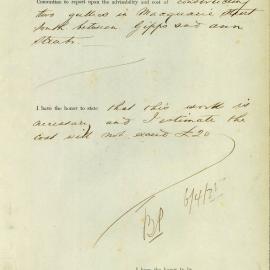 Committee to report upon the advisability and cost of constructing
two gullies in Macquarie Street
South between Gipps and Ann
Streets.
I have the honor to state that this work is
necessary and I estimate the
cost will not exceed £20
BP
6/4/21
I have the honor to be